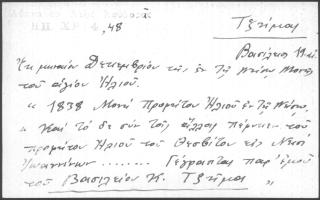 ΗΠ ΧΡ 4, 48
Τζτίμας
Βασίλειος
Ἐκ μηναίου Σεπτεμβρίου τῆς ἐν τῇ Νήσῳ Μονῆς
τοῦ ἁγίου Ἡλιοῦ.
« 1838 Μονὴ Προφήτου Ἡλιοῦ ἐν τῇ Νήσῳ,
« Καὶ τὸ δε σὺν τοῖς ἄλλοις πέρυσι τοῦ
προφήτου Ἡλιοῦ τοῦ Θεσβίτου εἰς Νησί
Ἰωαννίνων ........ Γέγραπται παρ' ἐμοῦ
τοῦ Βασιλείου Κ. Τζτίμα »